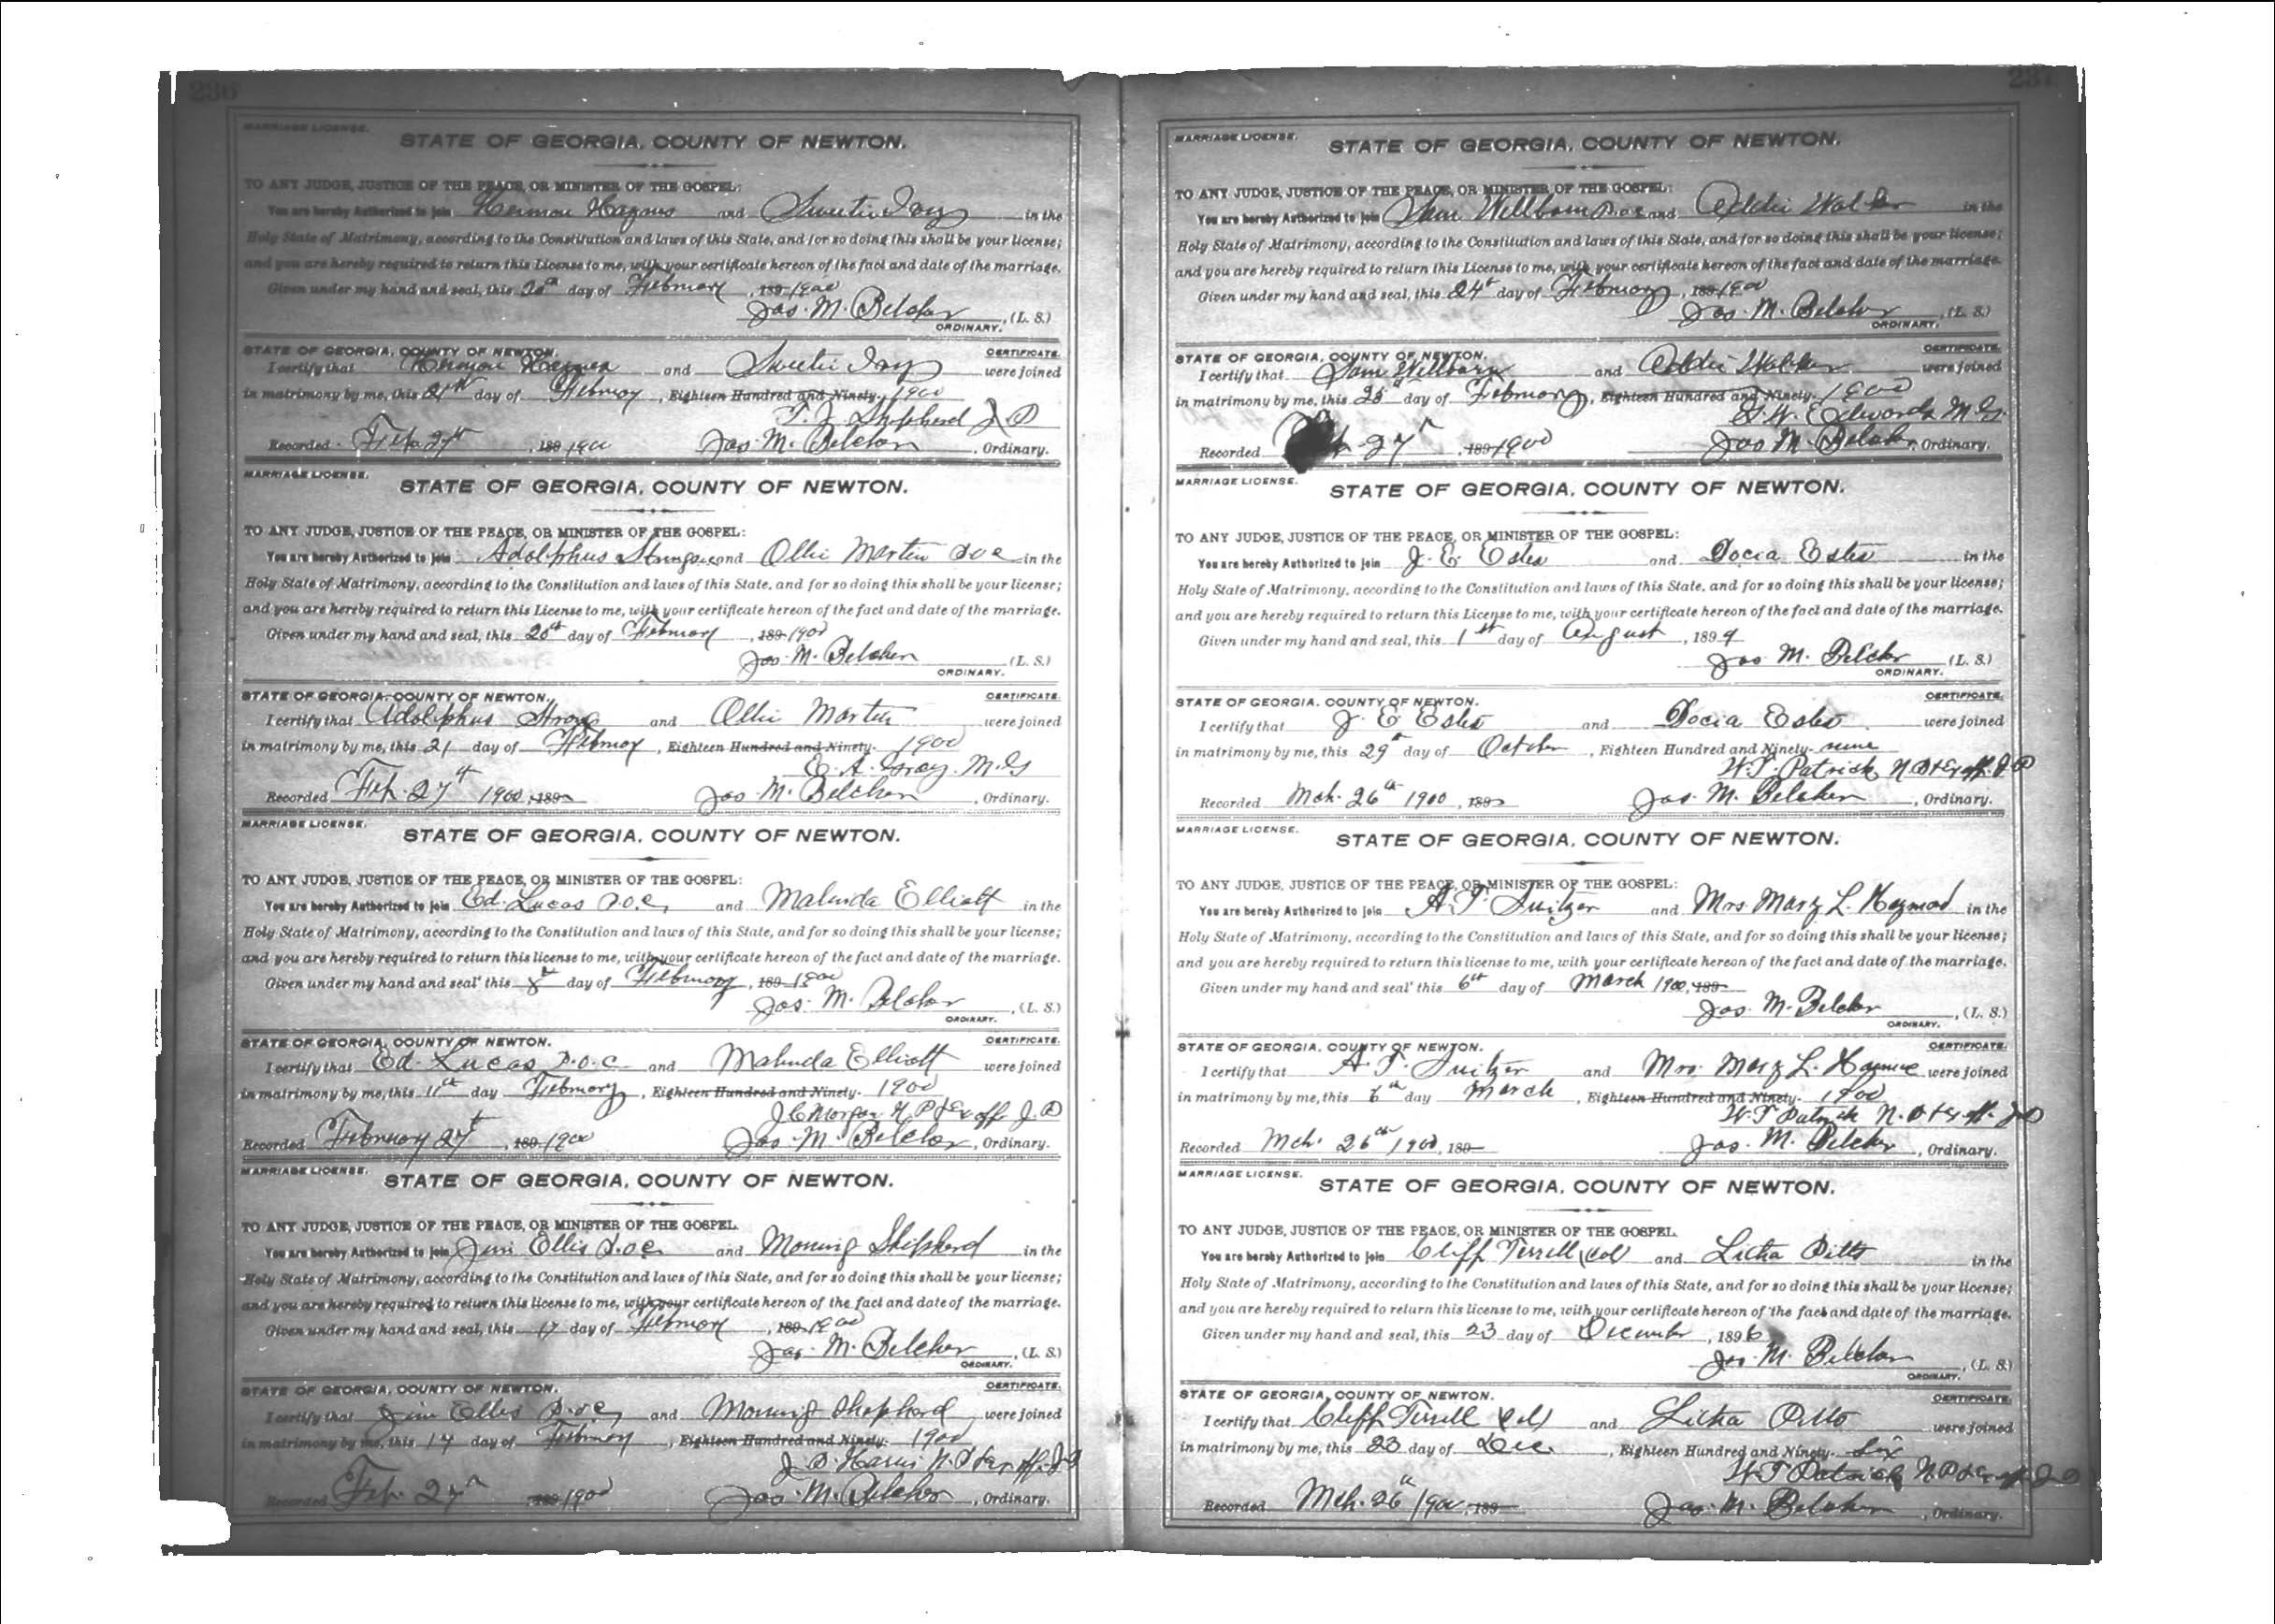 236
MARRIAGE LICENSE.
STATE OF GEORGIA, COUNTY OF NEWTON.
TO ANY JUDGE, JUSTICE OF THE PEACE, OR MINISTER OF THE GOSPEL:
You are hereby Authorized to join Hermon Haynes and Sweetie Ivy in the
Holy State of Matrimony, according to the Constitution and laws of this State, and for so doing this shall be your license;
and you are hereby required to return this License to me, with your certificate hereon of the fact and date of the marriage.
Given under my hand and seal, this 20th day of February, 189 1900
Jas. M. Belcher, (L. S.)
ORDINARY.
STATE OF GEORGIA, COUNTY OF NEWTON. CERTIFICATE.
I certify that Hermon Haynes and Sweetie Ivy were joined
in matrimony by me, this 21st day of February, Eighteen Hundred and Ninety- 1900
T. J. Shepherd J P
Recorded Feb. 27th, 189 1900 Jas. M. Belcher, Ordinary.
MARRIAGE LICENSE.
STATE OF GEORGIA, COUNTY OF NEWTON.
TO ANY JUDGE, JUSTICE OF THE PEACE, OR MINISTER OF THE GOSPEL:
You are hereby Authorized to join Adolphus and Ollie Martin in the
Holy State of Matrimony, according to the Constitution and laws of this State, and for so doing this shall be your license;
and you are hereby required to return this License to me, with your certificate hereon of the fact and date of the marriage.
Given under my hand and seal, this 20th day of February, 189 1900
Jas. M. Belcher (L. S.)
ORDINARY.
STATE OF GEORGIA, COUNTY OF NEWTON. CERTIFICATE.
I certify that Adolphus and Ollie Martin were joined
in matrimony by me, this 21 day of February, Eighteen Hundred and Ninety- 1900
E. A. Gray. M.G
Recorded Feb. 27th 1900, 189 Jas. M. Belcher, Ordinary.
MARRIAGE LICENSE.
STATE OF GEORGIA, COUNTY OF NEWTON.
TO ANY JUDGE, JUSTICE OF THE PEACE, OR MINISTER OF THE GOSPEL:
You are hereby Authorized to join Ed. Lucas P.O.C. and Malinda Elliott in the
Holy State of Matrimony, according to the Constitution and laws of this State, and for so doing this shall be your license;
and you are hereby required to return this License to me, with your certificate hereon of the fact and date of the marriage.
Given under my hand and seal this 8th day of February, 189 1900
Jas. M. Belcher, (L. S.)
ORDINARY.
STATE OF GEORGIA, COUNTY OF NEWTON. CERTIFICATE.
I certify that Ed. Lucas P.O.C. and Malinda Elliott were joined
in matrimony by me, this 11th day February, Eighteen Hundred and Ninety- 1900
J C Morgan N. P & Ex off. J. P
Recorded February 27th, 189 1900 Jas. M. Belcher, Ordinary.
MARRIAGE LICENSE.
STATE OF GEORGIA, COUNTY OF NEWTON.
TO ANY JUDGE, JUSTICE OF THE PEACE, OR MINISTER OF THE GOSPEL.
You are hereby Authorized to join Jim Ellis P.O.C. and Morning Shepherd in the
Holy State of Matrimony, according to the Constitution and laws of this State, and for so doing this shall be your license;
and you are hereby required to return this license to me, with your certificate hereon of the fact and date of the marriage.
Given under my hand and seal, this 17 day of February, 189 1900
Jas. M. Belcher, (L. S.)
ORDINARY.
STATE OF GEORGIA, COUNTY OF NEWTON. CERTIFICATE.
I certify that Jim Ellis P.O.C. and Morning Shepherd were joined
in matrimony by me, this 17 day of February, Eighteen Hundred and Ninety- 1900
J. B. Harris N. P & Ex off. J P
Recorded Feb. 27th 189 1900 Jas. M. Belcher, Ordinary.
237
MARRIAGE LICENSE.
STATE OF GEORGIA, COUNTY OF NEWTON.
TO ANY JUDGE, JUSTICE OF THE PEACE, OR MINISTER OF THE GOSPEL:
You are hereby Authorized to join Sam Wellborn P.O.C and Addie Walker in the
Holy State of Matrimony, according to the Constitution and laws of this State, and for so doing this shall be your license;
and you are hereby required to return this License to me, with your certificate hereon of the fact and date of the marriage.
Given under my hand and seal, this 24th day of February, 189 1900
Jas. M. Belcher, (L. S.)
ORDINARY.
STATE OF GEORGIA, COUNTY OF NEWTON. CERTIFICATE.
I certify that Sam Wellborn and Addie Walker were joined
in matrimony by me, this 25th day of February, Eighteen Hundred and Ninety- 1900
Edwards M. G.
Recorded 27th, 189 1900 Jas. M. Belcher, Ordinary.
MARRIAGE LICENSE.
STATE OF GEORGIA, COUNTY OF NEWTON.
TO ANY JUDGE, JUSTICE OF THE PEACE, OR MINISTER OF THE GOSPEL:
You are hereby Authorized to join J. E. Estes and Docia Estes in the
Holy State of Matrimony, according to the Constitution and laws of this State, and for so doing this shall be your license;
and you are hereby required to return this License to me, with your certificate hereon of the fact and date of the marriage.
Given under my hand and seal, this 1st day of August, 1899
Jas. M. Belcher (L. S.)
ORDINARY.
STATE OF GEORGIA, COUNTY OF NEWTON. CERTIFICATE.
I certify that J. E Estes and Docia Estes were joined
in matrimony by me, this 29th day of October, Eighteen Hundred and Ninety- nine
W. T. Patrick N. P & Ex off. J. P
Recorded Mch. 26th 1900, 189 Jas. M. Belcher, Ordinary.
MARRIAGE LICENSE.
STATE OF GEORGIA, COUNTY OF NEWTON.
TO ANY JUDGE, JUSTICE OF THE PEACE, OR MINISTER OF THE GOSPEL:
You are hereby Authorized to join A. T. and Mrs Mary L. in the
Holy State of Matrimony, according to the Constitution and laws of this State, and for so doing this shall be your license;
and you are hereby required to return this license to me, with your certificate hereon of the fact and date of the marriage.
Given under my hand and seal this 6th day of March 1900, 189
Jas. M. Belcher, (L. S.)
ORDINARY.
STATE OF GEORGIA, COUNTY OF NEWTON. CERTIFICATE.
I certify that A. T. and Mrs. Mary L. were joined
in matrimony by me, this 6th day March, Eighteen Hundred and Ninety- 1900
W. T Patrick N. P & Ex off. J P
Recorded Mch. 26th 1900, 189 Jas. M. Belcher, Ordinary.
MARRIAGE LICENSE.
STATE OF GEORGIA, COUNTY OF NEWTON.
TO ANY JUDGE, JUSTICE OF THE PEACE, OR MINISTER OF THE GOSPEL.
You are hereby Authorized to join Cliff Terrell (Col) and Pitts in the
Holy State of Matrimony, according to the Constitution and laws of this State, and for so doing this shall be your license;
and you are hereby required to return this license to me, with your certificate hereon of the fact and date of the marriage.
Given under my hand and seal, this 23 day of December, 1896
Jas. M. Belcher, (L. S.)
ORDINARY.
STATE OF GEORGIA, COUNTY OF NEWTON. CERTIFICATE.
I certify that Cliff Terrell (Col) and Pitts were joined
in matrimony by me, this 23 day of Dec., Eighteen Hundred and Ninety- Six
W. T Patrick N. P & Ex off. J P
Recorded Mch. 26th 1900, 189 Jas. M. Belcher, Ordinary.